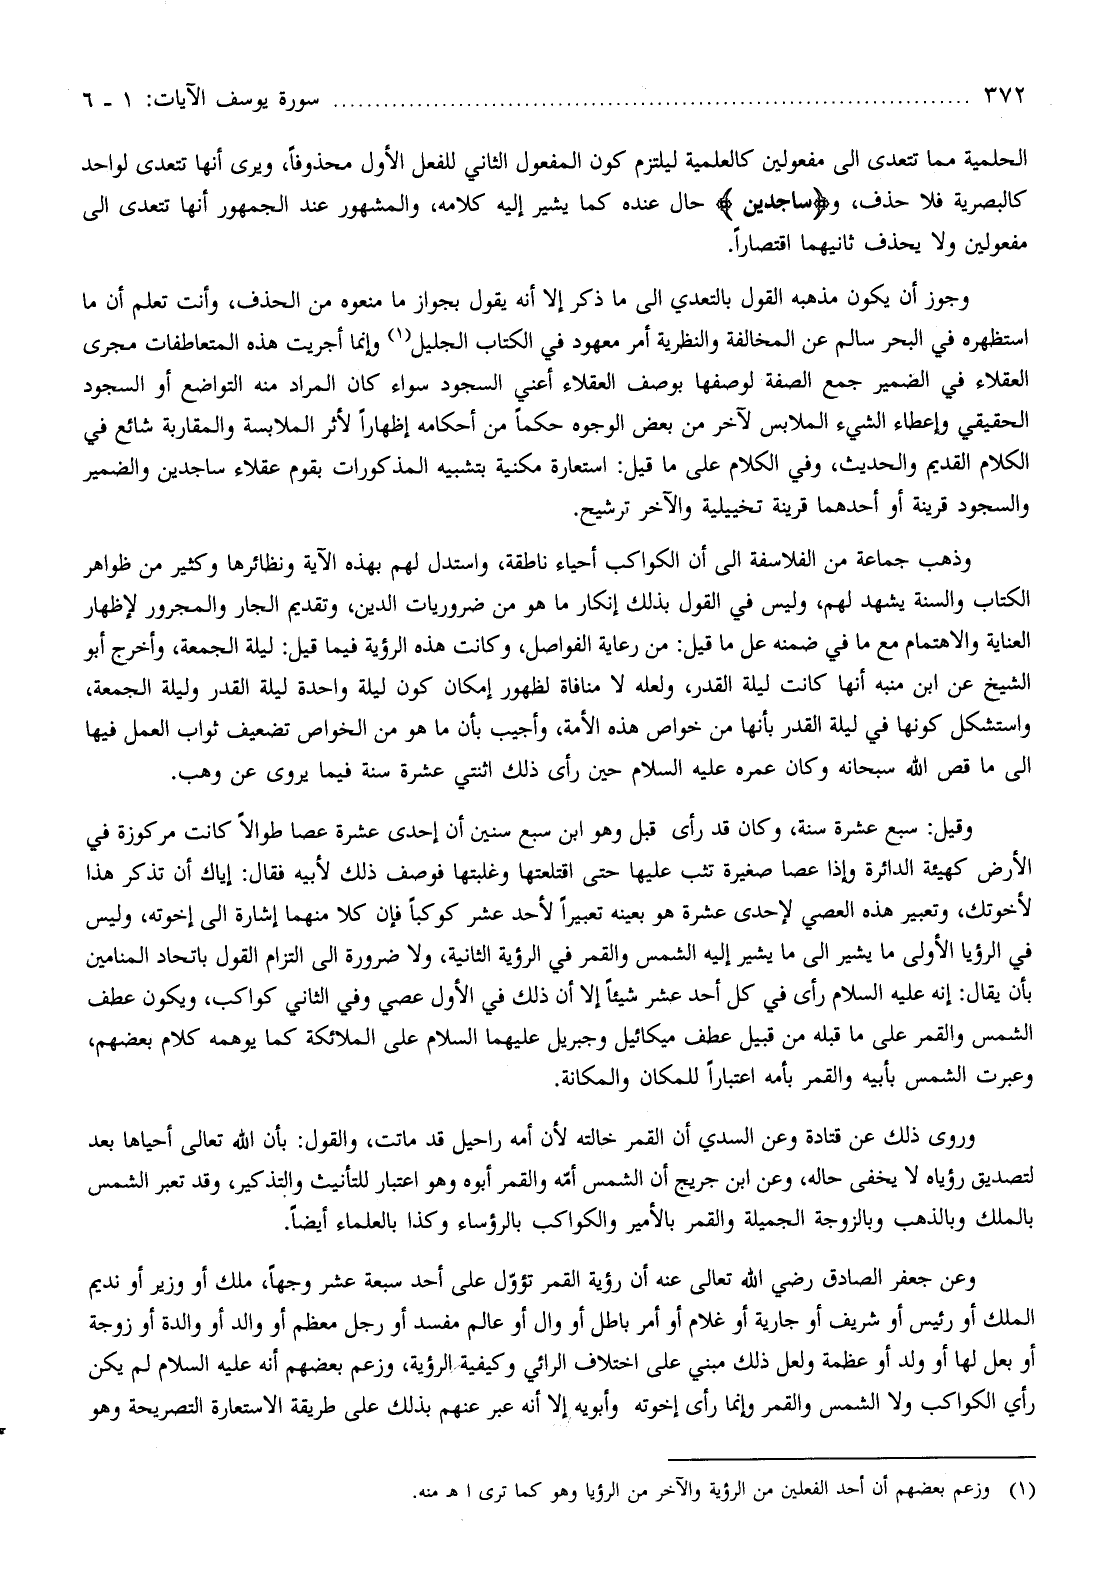 ٣٧٢ ........................................................ سورة يوسف الآيات: ١ ـ ٦
الحلمية مما تتعدى الى مفعولين كالعلمية ليلتزم كون المفعول الثاني للفعل الأول محذوفاً، ويرى أنها تتعدى لواحد
كالبصرية فلا حذف، و﴿ساجدين﴾ حال عنده كما يشير إليه كلامه، والمشهور عند الجمهور أنها تتعدى الى
مفعولين ولا يحذف ثانيهما اقتصاراً.
وجوز أن يكون مذهبه القول بالتعدي الى ما ذكر إلا أنه يقول بجواز ما منعوه من الحذف، وأنت تعلم أن ما
استظهره في البحر سالم عن المخالفة والنظرية أمر معهود في الكتاب الجليل(١) وإنما أجريت هذه المتعاطفات مجرى
العقلاء في الضمير جمع الصفة لوصفها بوصف العقلاء أعني السجود سواء كان المراد منه التواضع أو السجود
الحقيقي وإعطاء الشيء الملابس لآخر من بعض الوجوه حكماً من أحكامه إظهاراً لأثر الملابسة والمقاربة شائع في
الكلام القديم والحديث، وفي الكلام على ما قيل: استعارة مكنية بتشبيه المذكورات بقوم عقلاء ساجدين والضمير
والسجود قرينة أو أحدهما قرينة تخييلية والآخر ترشيح.
وذهب جماعة من الفلاسفة الى أن الكواكب أحياء ناطقة، واستدل لهم بهذه الآية ونظائرها وكثير من ظواهر
الكتاب والسنة يشهد لهم، وليس في القول بذلك إنكار ما هو من ضروريات الدين، وتقديم الجار والمجرور لإظهار
العناية والاهتمام مع ما في ضمنه عل ما قيل: من رعاية الفواصل، وكانت هذه الرؤية فيما قيل: ليلة الجمعة، وأخرج أبو
الشيخ عن ابن منبه أنها كانت ليلة القدر، ولعله لا منافاة لظهور إمكان كون ليلة واحدة ليلة القدر وليلة الجمعة،
واستشكل كونها في ليلة القدر بأنها من خواص هذه الأمة، وأجيب بأن ما هو من الخواص تضعيف ثواب العمل فيها
الى ما قص الله سبحانه وكان عمره عليه السلام حين رأى ذلك اثنتي عشرة سنة فيما يروى عن وهب.
وقيل: سبع عشرة سنة، وكان قد رأى قبل وهو ابن سبع سنين أن إحدى عشرة عصا طوالاً كانت مركوزة في
الأرض كهيئة الدائرة وإذا عصا صغيرة تثب عليها حتى اقتلعتها وغلبتها فوصف ذلك لأبيه فقال: إياك أن تذكر هذا
لأخوتك، وتعبير هذه العصي لإحدى عشرة هو بعينه تعبيراً لأحد عشر كوكباً فإن كلا منهما إشارة الى إخوته، وليس
في الرؤيا الأولى ما يشير الى ما يشير إليه الشمس والقمر في الرؤية الثانية، ولا ضرورة الى التزام القول باتحاد المنامين
بأن يقال: إنه عليه السلام رأى في كل أحد عشر شيئاً إلا أن ذلك في الأول عصي وفي الثاني كواكب، ويكون عطف
الشمس والقمر على ما قبله من قبيل عطف ميكائيل وجبريل عليهما السلام على الملائكة كما يوهمه كلام بعضهم،
وعبرت الشمس بأبيه والقمر بأمه اعتباراً للمكان والمكانة.
وروى ذلك عن قتادة وعن السدي أن القمر خالته لأن أمه راحيل قد ماتت، والقول: بأن الله تعالى أحياها بعد
لتصديق رؤياه لا يخفى حاله، وعن ابن جريج أن الشمس أمّه والقمر أبوه وهو اعتبار للتأنيث والتذكير، وقد تعبر الشمس
بالملك وبالذهب وبالزوجة الجميلة والقمر بالأمير والكواكب بالرؤساء وكذا بالعلماء أيضاً.
وعن جعفر الصادق رضي الله تعالى عنه أن رؤية القمر تؤوّل على أحد سبعة عشر وجهاً، ملك أو وزير أو نديم
الملك أو رئيس أو شريف أو جارية أو غلام أو أمر باطل أو وال أو عالم مفسد أو رجل معظم أو والد أو والدة أو زوجة
أو بعل لها أو ولد أو عظمة ولعل ذلك مبني على اختلاف الرائي وكيفية الرؤية، وزعم بعضهم أنه عليه السلام لم يكن
رأي الكواكب ولا الشمس والقمر وإنما رأى إخوته وأبويه إلا أنه عبر عنهم بذلك على طريقة الاستعارة التصريحة وهو
(١) وزعم بعضهم أن أحد الفعلين من الرؤية والآخر من الرؤيا وهو كما ترى ا هـ منه.